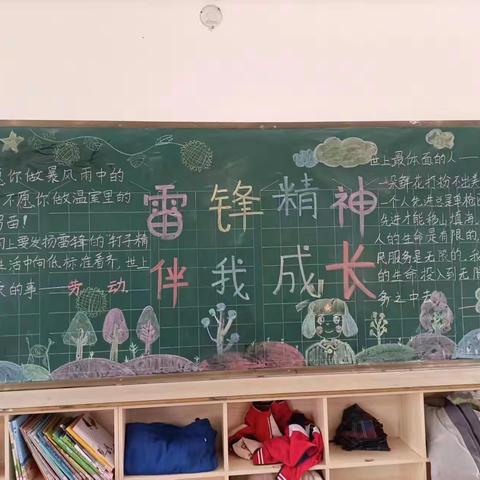 愿你做暴风雨中的
不愿你做温室里的
弱苗！
要发扬雷锋的钉子精
生活中向低标准看齐，世上
的事——劳动。
雷锋精神
伴我成长
世上最体面的人——
一朵鲜花打扮不出美
一个人先进总是单枪匹
先进才能移山填海。
人的生命是有限的，
民服务是无限的，我
的生命，投入到无限
务之中去